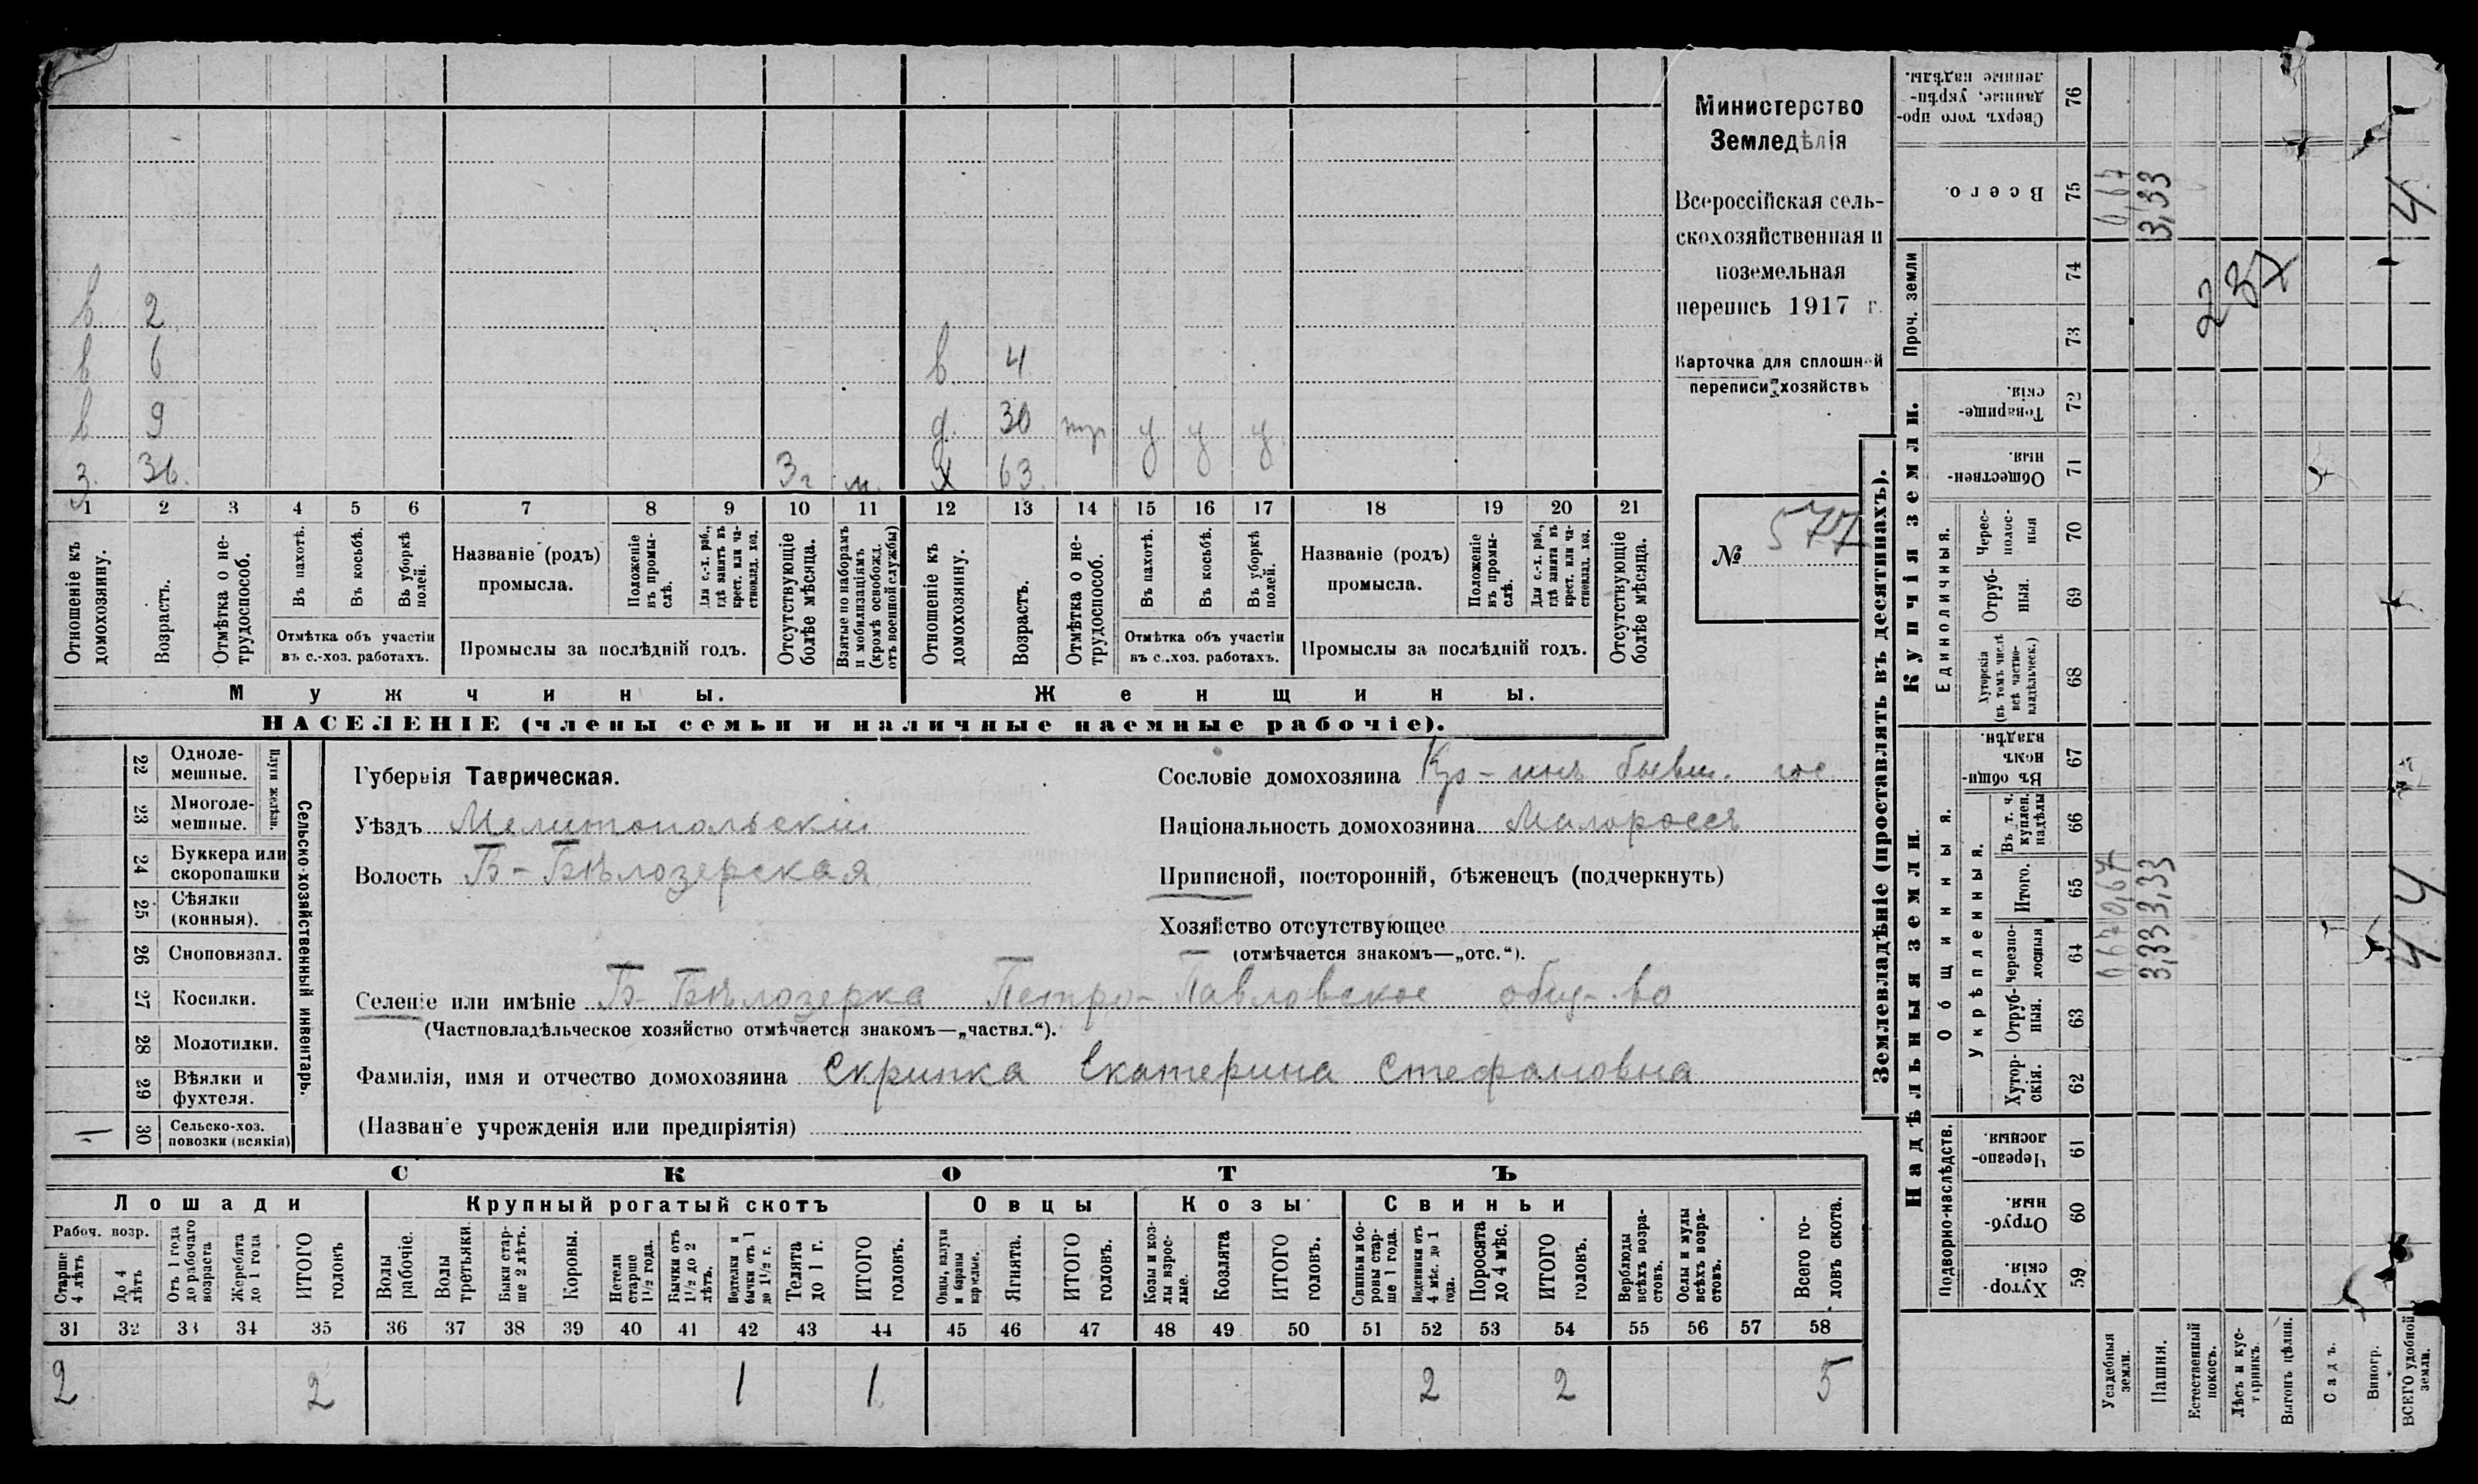 Министерство
Земледѣлія
Всероссійская сель-
скохозяйственная и
поземельная
перепись 1917 г.
Карточка для сплошной
переписи хозяйствъ
№ 577
в 2
в 6 в 4
в 9 д. 30 нтр у у у
з. 36. 3г м. х 63.
1 2 3 4 5 6 7 8 9 10 11 12 13 14 15 16 17 18 19 20 21
Отношеніе къ домохозяину.
Возрастъ.
Отмѣтка о не-трудоспособ.
Въ пахотѣ.
Въ косьбѣ.
Въ уборкѣ полей.
Отмѣтка объ участіи
въ с.-хоз. работахъ.
Названіе (родъ)
промысла.
Положеніе въ промы-слѣ.
Для с.-х. раб., гдѣ занятъ въ крест. или ча-стновлад. хоз.
Промыслы за послѣдній годъ.
Отсутствующіе болѣе мѣсяца.
Взятые по наборамъ и мобилизаціямъ (кромѣ освобожд. отъ военной службы)
Отношеніе къ домохозяину.
Возрастъ.
Отмѣтка о не-трудоспособ.
Въ пахотѣ.
Въ косьбѣ.
Въ уборкѣ полей.
Отмѣтка объ участіи
въ с.-хоз. работахъ.
Названіе (родъ)
промысла.
Положеніе въ промы-слѣ.
Для с.-х. раб., гдѣ занята въ крест. или ча-стновлад. хоз.
Промыслы за послѣдній годъ.
Отсутствующіе болѣе мѣсяца.
Мужчины. Женщины.
НАСЕЛЕНІЕ (члены семьи и наличные наемные рабочіе).
Сельско-хозяйственный инвентарь.
Плуги желѣзн.
22 Одноле-мешные.
23 Многоле-мешные.
24 Буккера или скоропашки
25 Сѣялки (конныя).
26 Сноповязал.
27 Косилки.
28 Молотилки.
29 Вѣялки и фухтеля.
30 Сельско-хоз. повозки (всякія) 1
Губернія Таврическая.
Уѣздъ Мелитопольскій
Волость Б-Бѣлозерская
Сословіе домохозяина Кр-инъ бывш. гос
Національность домохозяина Малороссъ
Приписной, посторонній, бѣженецъ (подчеркнуть)
Хозяйство отсутствующее
(отмѣчается знакомъ—„отс.“).
Селеніе или имѣніе Б-Бѣлозерка Петро-Павловское общ-во
(Частновладѣльческое хозяйство отмѣчается знакомъ—„частвл.“).
Фамилія, имя и отчество домохозяина Скрипка Екатерина Стефановна
(Названіе учрежденія или предпріятія)
СКОТЪ
Лошади Крупный рогатый скотъ Овцы Козы Свиньи
Рабоч. возр.
Старше 4 лѣтъ
До 4 лѣтъ
Отъ 1 года до рабочаго возраста
Жеребята до 1 года
ИТОГО головъ
Волы рабочіе.
Волы третьяки.
Быки стар-ше 2 лѣтъ.
Коровы.
Нетели старше 1½ года.
Бычки отъ 1½ до 2 лѣтъ.
Подтелки и бычки отъ 1 до 1½ г.
Телята до 1 г.
ИТОГО головъ.
Овцы, валухи и бараны взрослые.
Ягнята.
ИТОГО головъ.
Козы и коз-лы взрос-лые.
Козлята
ИТОГО головъ.
Свиньи и бо-ровы стар-ше 1 года.
Подсвинки отъ 4 мѣс. до 1 года.
Поросята до 4 мѣс.
ИТОГО головъ.
Верблюды всѣхъ возра-стовъ.
Ослы и мулы всѣхъ возра-стовъ.
Всего го-ловъ скота.
31 32 33 34 35 36 37 38 39 40 41 42 43 44 45 46 47 48 49 50 51 52 53 54 55 56 57 58
2 2 1 1 2 2 5
Землевладѣніе (проставлять въ десятинахъ).
Надѣльныя земли.
Купчія земли.
Проч. земли
Подворно-наслѣдств.
Общинныя.
Укрѣпленныя.
Единоличныя.
Сверхъ того про-данные, укрѣп-ленные надѣлы. 76
Всего. 75 0,67 3,33 4
74
73
237
Товарище-скія. 72
Обществен-ныя. 71
Черес-полос-ныя 70
Отруб-ныя. 69
Хуторскія (въ томъ числѣ всѣ частно-владѣльческ.) 68
Въ общин-номъ владѣн. 67
Въ т. ч. куплен. надѣлы 66
Итого. 65 0,67 3,33 4
Черезпо-лосныя 64 0,67 3,33 4
Отруб-ныя. 63
Хутор-скія. 62
Черезпо-лосныя. 61
Отруб-ныя. 60
Хутор-скія. 59
Усадебныя земли.
Пашня.
Естественный покосъ.
Лѣсъ и кус-тарникъ.
Выгонъ цѣлин.
Садъ.
Виногр.
ВСЕГО удобной земли.